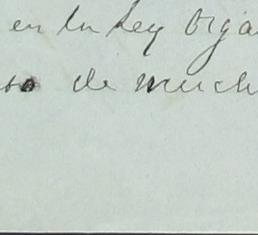 en la Ley Orga
so de much